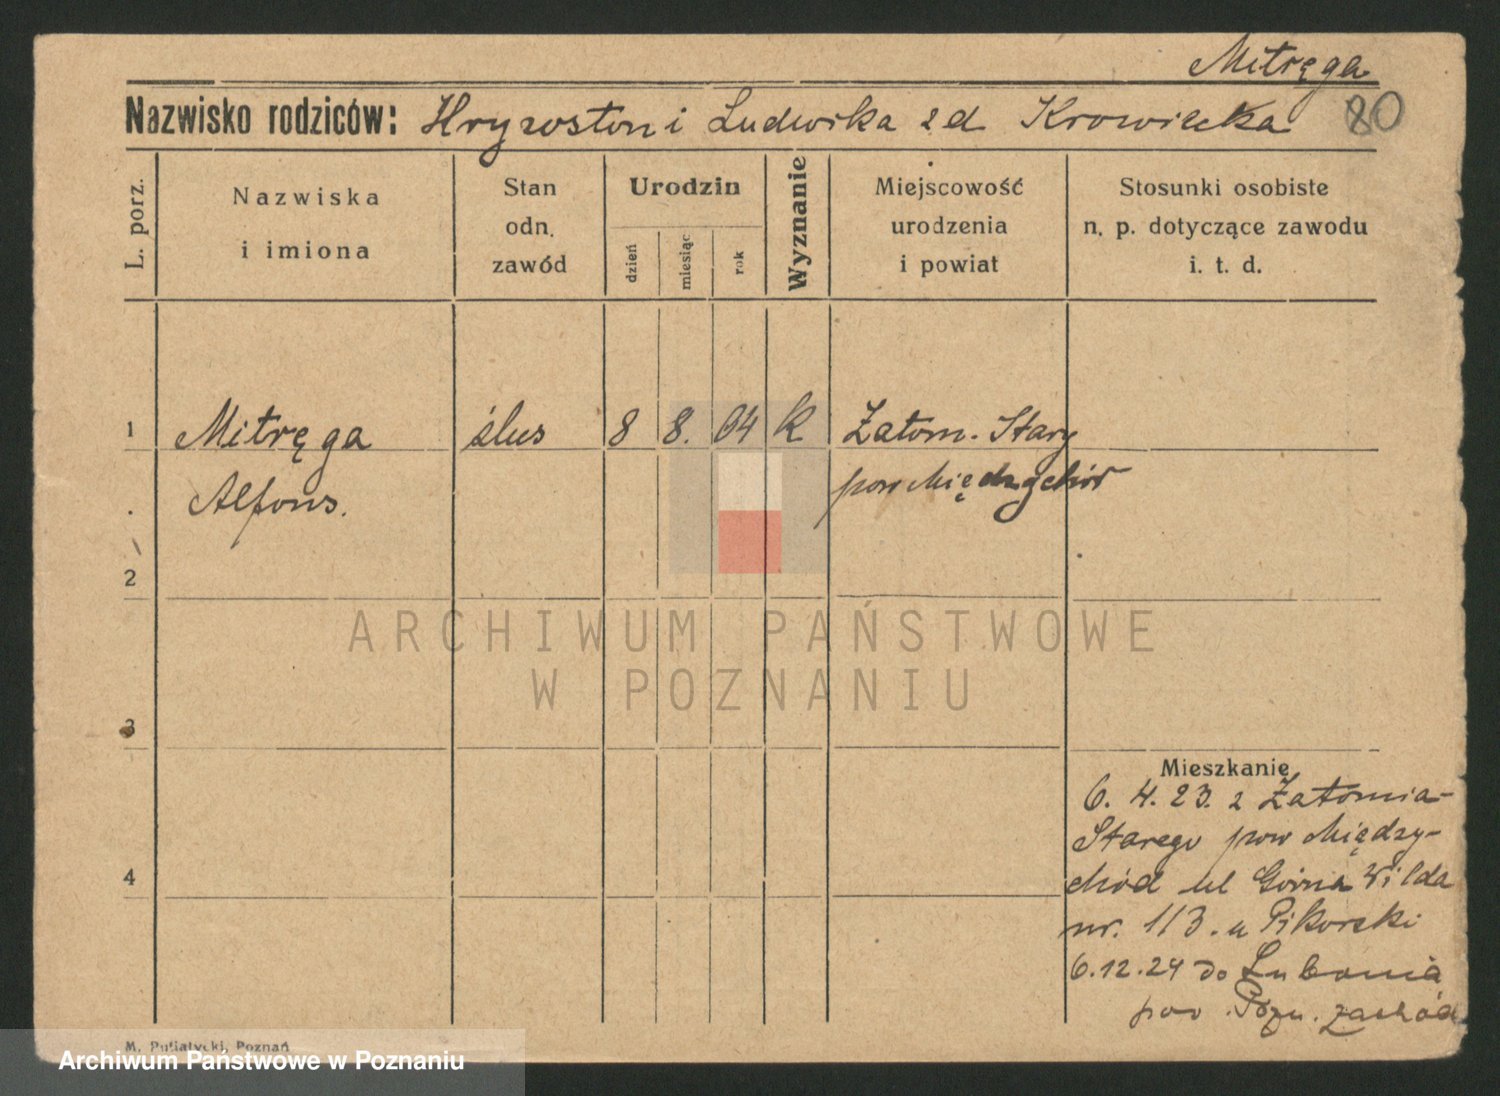 Mitręga
Nazwisko rodziców: Hryzostom i Ludwika z d Krowicka 80
L. porz.
Nazwiska
i imiona
Stan
odn.
zawód
Urodzin
dzień
miesiąc
rok
Wyznanie
Miejscowość
urodzenia
i powiat
Stosunki osobiste
n. p. dotyczące zawodu
i. t. d.
1 Mitręga ślus 8 8. 04 k Zatom. Stary
Alfons. pow Międzychód
2
3
4
Mieszkanie
6. 4. 23. z Zatomia-
Starego pow Między-
chód ul Górna Wilda
nr. 113. u Pikorski
6.12.24 do Lubonia
pow. Pozn. zachód
M. Putiatycki, Poznań
ARCHIWUM PAŃSTWOWE
W POZNANIU
Archiwum Państwowe w Poznaniu